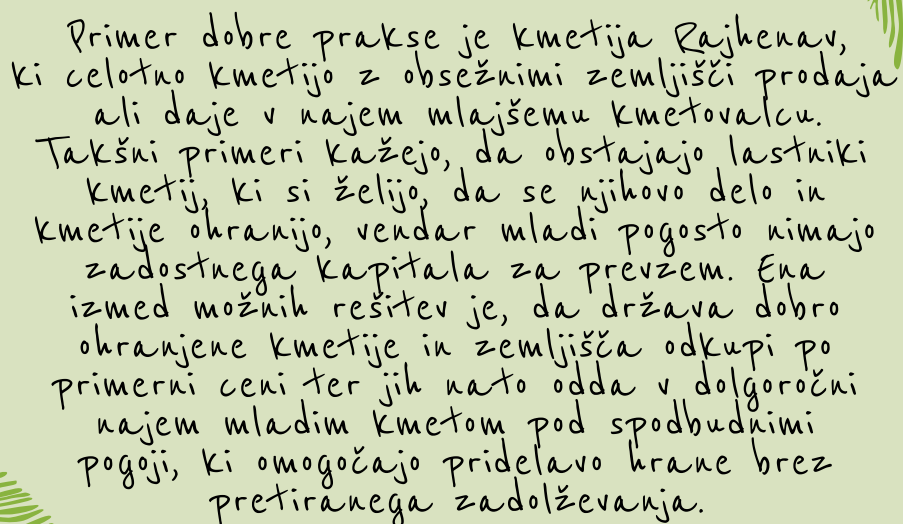 Primer dobre prakse je kmetija Rajhenav,
ki celotno kmetijo z obsežnimi zemljišči prodaja
ali daje v najem mlajšemu kmetovalcu.
Takšni primeri kažejo, da obstajajo lastniki
kmetij, ki si želijo, da se njihovo delo in
kmetije ohranijo, vendar mladi pogosto nimajo
zadostnega kapitala za prevzem. Ena
izmed možnih rešitev je, da država dobro
ohranjene kmetije in zemljišča odkupi po
primerni ceni ter jih nato odda v dolgoročni
najem mladim kmetom pod spodbudnimi
pogoji, ki omogočajo pridelavo hrane brez
pretiranega zadolževanja.